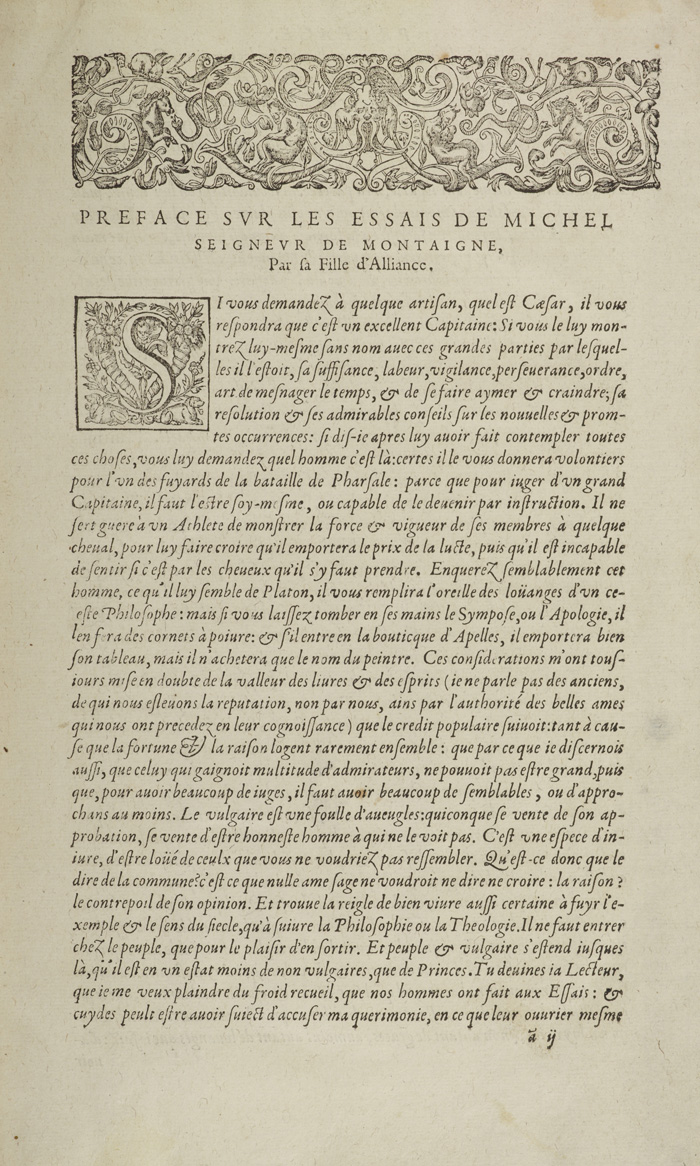 PREFACE SVR LES ESSAIS DE MICHEL
SEIGNEVR DE MONTAIGNE,
Par ſa Fille d'Alliance.
SI vous demandeZ à quelque artiſan, quel eſt Cæſar, il vous
reſpondra que c'eſt vn excellent Capitaine: Si vous le luy mon-
treZ luy-meſme ſans nom auec ces grandes parties par leſquel-
les il l'eſtoit, ſa ſuffiſance, labeur, vigilance, perſeuerance, ordre,
art de meſnager le temps, & de ſe faire aymer & craindre; ſa
reſolution & ſes admirables conſeils ſur les nouuelles & prom-
tes occurrences: ſi diſ-ie apres luy auoir fait contempler toutes
ces choſes, vous luy demandez quel homme c'eſt là: certes il le vous donnera volontiers
pour l'vn des fuyards de la bataille de Pharſale: parce que pour iuger d'vn grand
Capitaine, il faut l'eſtre ſoy-meſme, ou capable de le deuenir par inſtruction. Il ne
ſert guere à vn Athlete de monſtrer la force & vigueur de ſes membres à quelque
cheual, pour luy faire croire qu'il emportera le prix de la lucte, puis qu'il eſt incapable
de ſentir ſi c'eſt par les cheueux qu'il s'y faut prendre. EnquereZ ſemblablement cet
homme, ce qu'il luy ſemble de Platon, il vous remplira l'oreille des loüanges d'vn ce-
eſte Philoſophe: mais ſi vous laiſſez tomber en ſes mains le Sympoſe, ou l'Apologie, il
l'en fera des cornets à poiure: & ſ'il entre en la bouticque d'Apelles, il emportera bien
ſon tableau, mais il n'achetera que le nom du peintre. Ces conſiderations m'ont touſ-
iours miſe en doubte de la valleur des liures & des eſprits (ie ne parle pas des anciens,
de qui nous eſleuons la reputation, non par nous, ains par l'authorité des belles ames
qui nous ont precedez en leur cognoiſſance) que le credit populaire ſuiuoit: tant à cau-
ſe que la fortune & la raiſon logent rarement enſemble: que par ce que ie diſcernois
auſſi, que celuy qui gaignoit multitude d'admirateurs, ne pouuoit pas eſtre grand, puis
que, pour auoir beaucoup de iuges, il faut auoir beaucoup de ſemblables, ou d'appro-
chans au moins. Le vulgaire eſt vne foulle d'aueugles: quiconque ſe vente de ſon ap-
probation, ſe vente d'eſtre honneſte homme à qui ne le voit pas. C'eſt vne eſpece d'in-
iure, d'eſtre loüé de ceulx que vous ne voudrieZ pas reſſembler. Qu'eſt-ce donc que le
dire de la commune? c'eſt ce que nulle ame ſage ne voudroit ne dire ne croire: la raiſon?
le contrepoil de ſon opinion. Et trouue la reigle de bien viure auſſi certaine à fuyr l'e-
xemple & le ſens du ſiecle, qu'à ſuiure la Philoſophie ou la Theologie. Il ne faut entrer
cheZ le peuple, que pour le plaiſir d'en ſortir. Et peuple & vulgaire s'eſtend iuſques
là, qu'il eſt en vn eſtat moins de non vulgaires, que de Princes. Tu deuines ia Lecteur,
que ie me veux plaindre du froid recueil, que nos hommes ont fait aux Eſſais: &
cuydes peult eſtre auoir ſuiect d'accuſer ma querimonie, en ce que leur ouurier meſme
ã ij